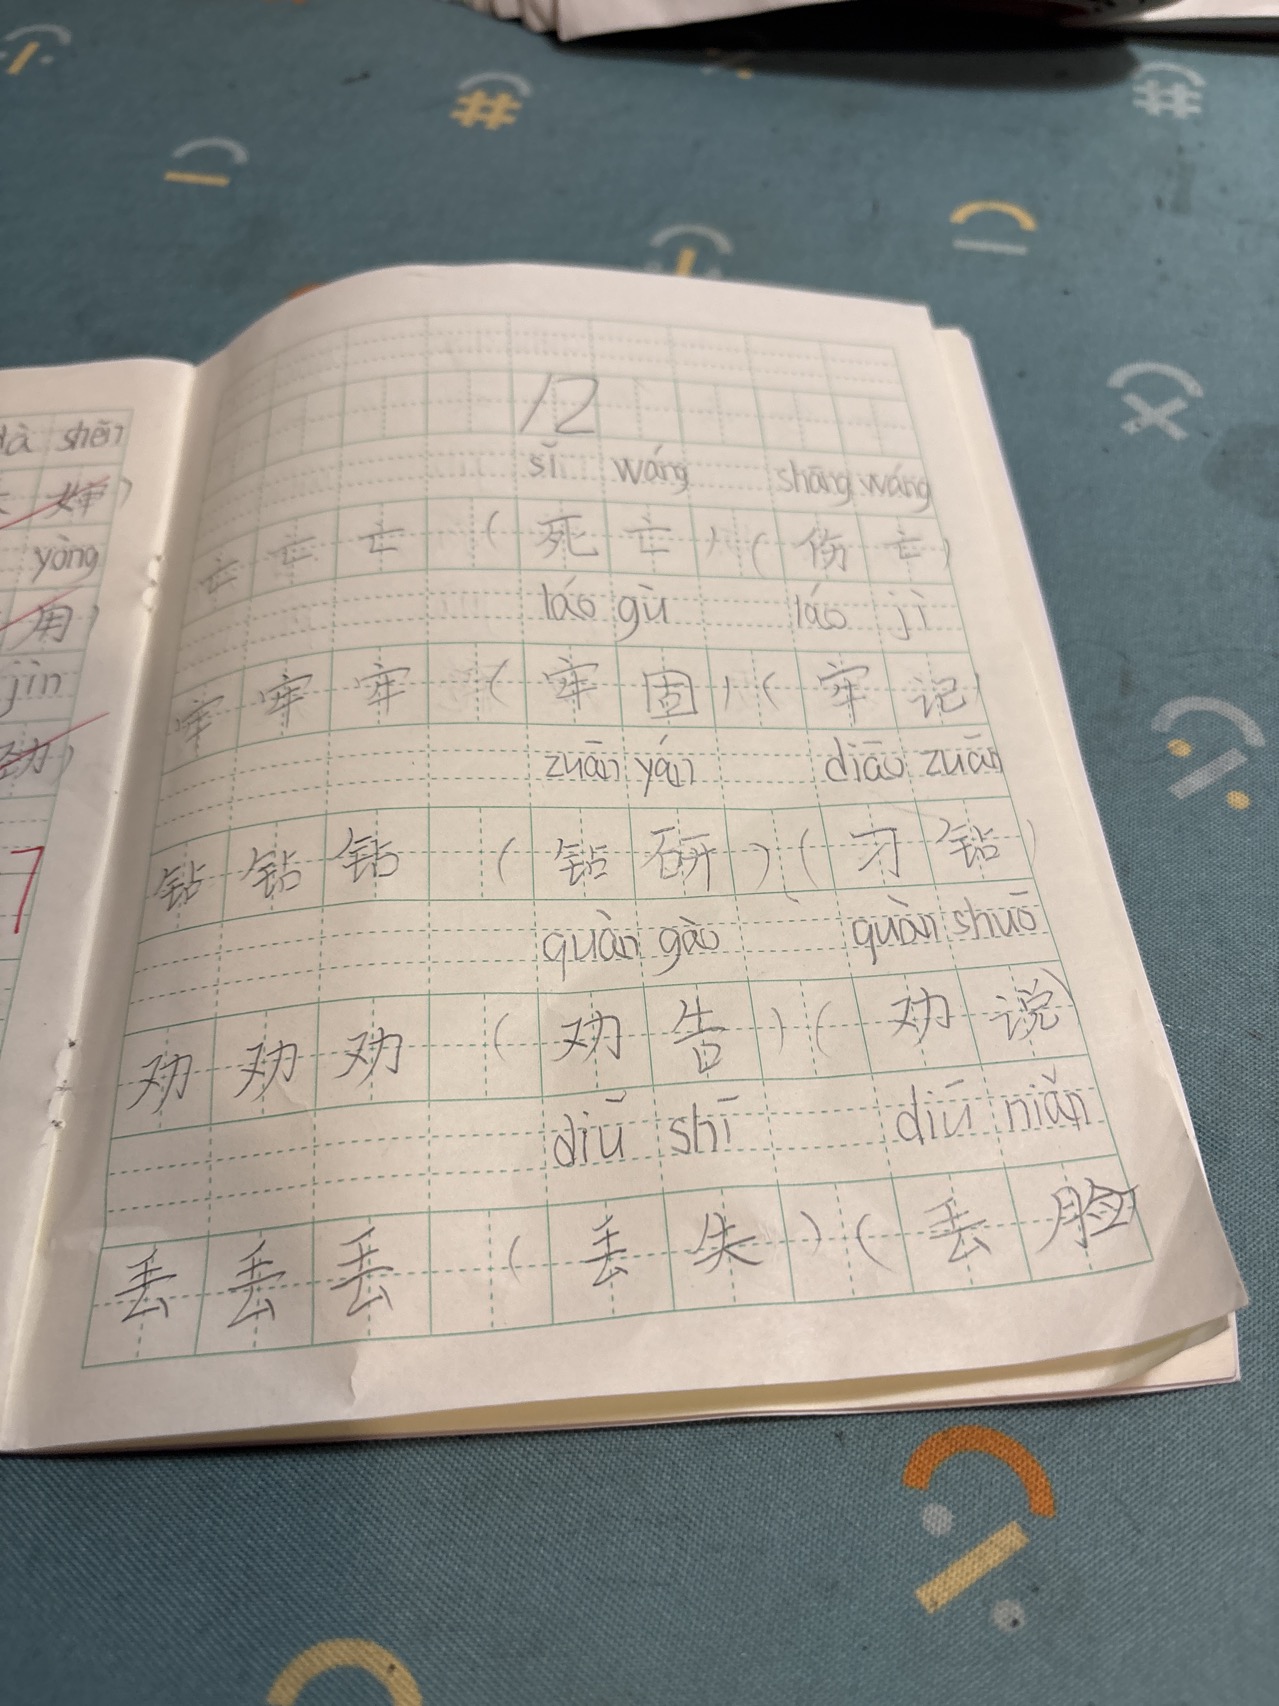 12
sǐ wáng shāng wáng
亡 亡 亡 ( 死 亡 ) ( 伤 亡 )
láo gù láo jì
牢 牢 牢 ( 牢 固 ) ( 牢 记 )
zuān yán diāo zuān
钻 钻 钻 ( 钻 研 ) ( 刁 钻 )
quàn gào quàn shuō
劝 劝 劝 ( 劝 告 ) ( 劝 说 )
diū shī diū niǎn
丢 丢 丢 ( 丢 失 ) ( 丢 脸
shěn
yòng
用 )
jìn
7